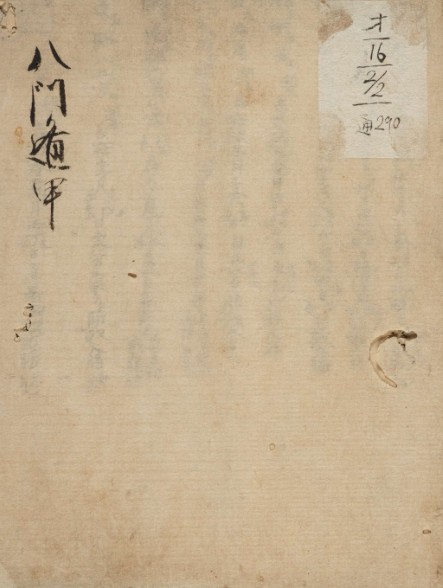 八門遁甲
才
16
2/2
通290